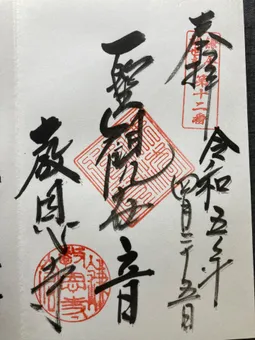 奉拝
第十二番
令和五年
四月二十五日
聖観世音
教恩寺